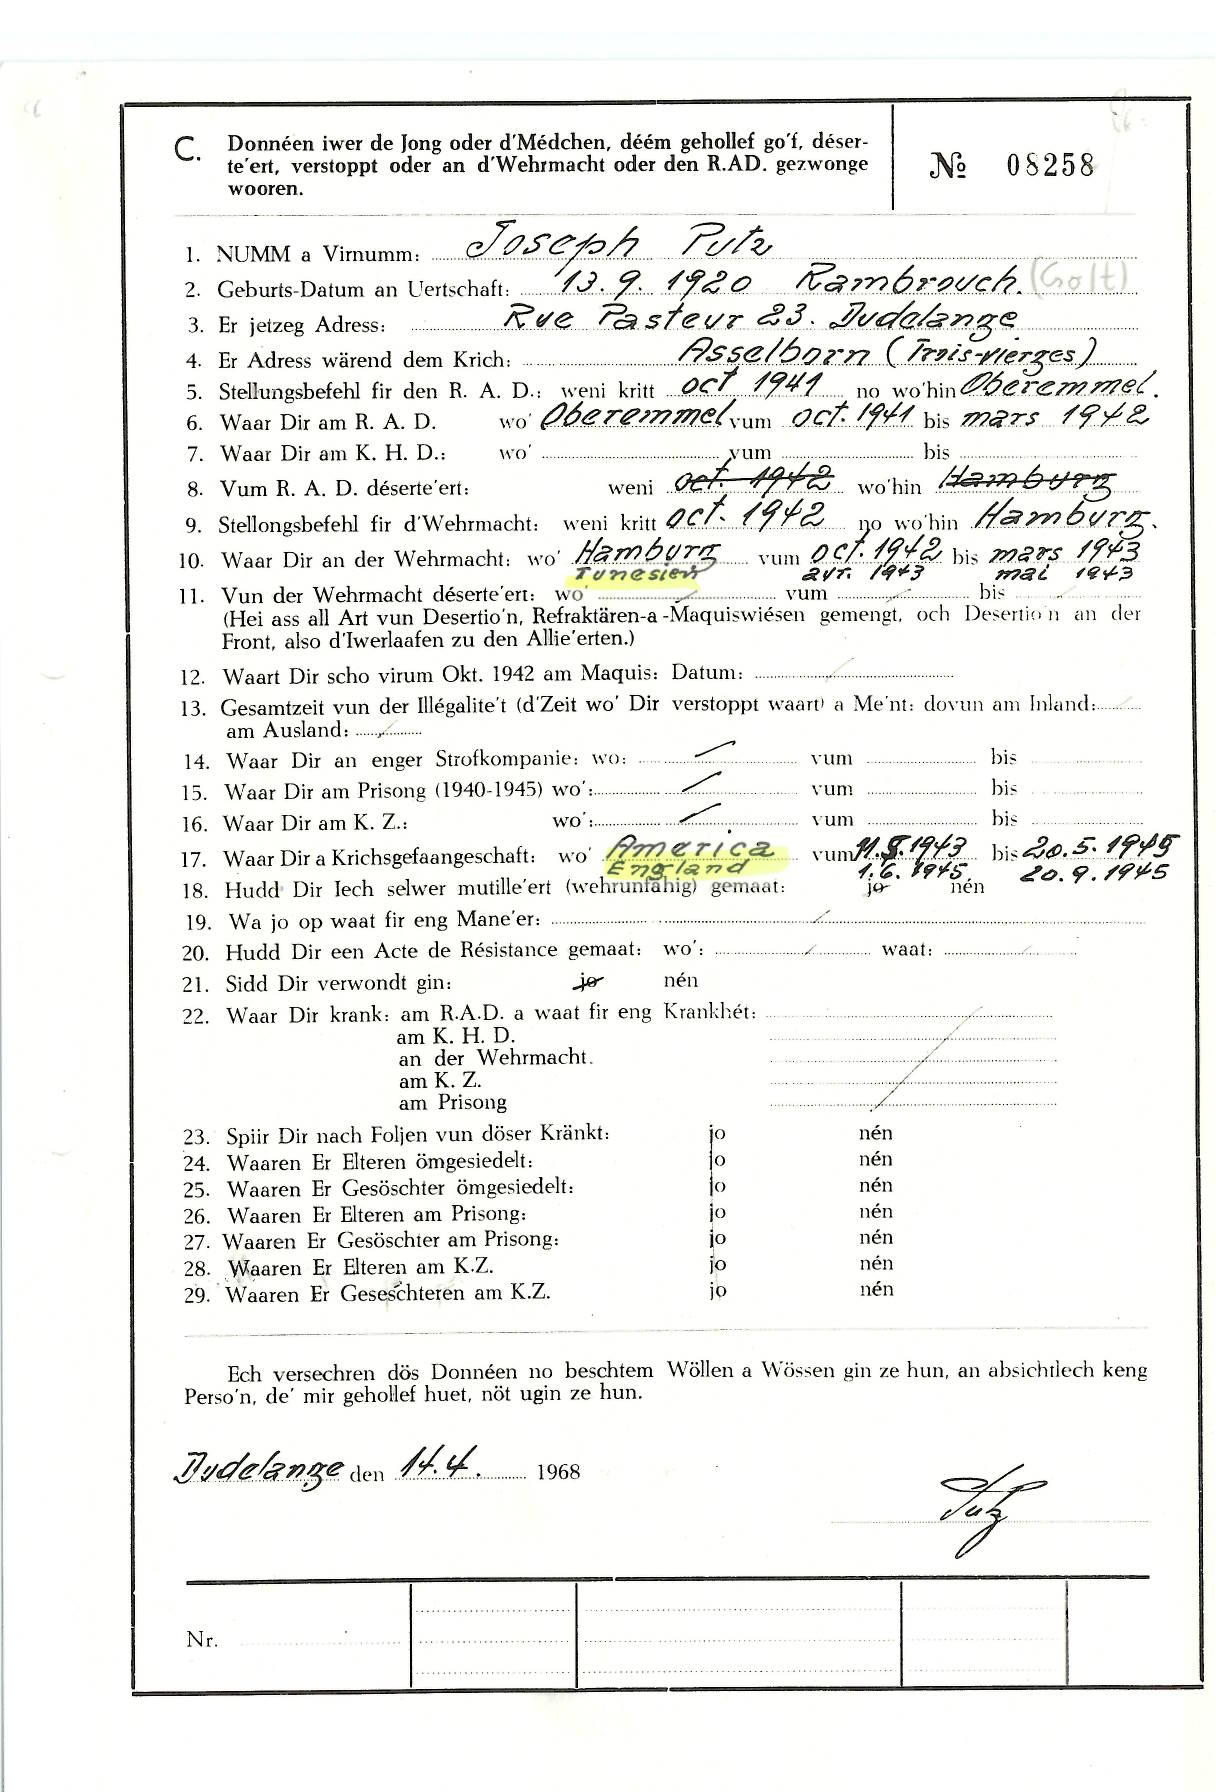 C. Donnéen iwer de Jong oder d'Médchen, déém gehollef go'f, déser-
te'ert, verstoppt oder an d'Wehrmacht oder den R.AD. gezwonge
wooren.
№ 08258
1. NUMM a Virnumm: Joseph Putz
2. Geburts-Datum an Uertschaft: 13.9.1920 Rambrouch. (Golt)
3. Er jetzeg Adress: Rue Pasteur 23. Dudelange
4. Er Adress wärend dem Krich: Asselborn (Trois-vierges)
5. Stellungsbefehl fir den R. A. D.: weni kritt oct 1941 no wo'hin Oberemmel.
6. Waar Dir am R. A. D. wo' Oberemmel vum oct. 1941 bis mars 1942
7. Waar Dir am K. H. D.: wo' vum bis
8. Vum R. A. D. déserte'ert: weni oct. 1942 wo'hin Hamburg
9. Stellongsbefehl fir d'Wehrmacht: weni kritt oct. 1942 no wo'hin Hamburg.
10. Waar Dir an der Wehrmacht: wo' Hamburg vum oct. 1942 bis mars 1943
Tunesien avr. 1943 mai 1943
11. Vun der Wehrmacht déserte'ert: wo' vum bis
(Hei ass all Art vun Desertio'n, Refraktären-a -Maquiswiésen gemengt, och Desertio'n an der
Front, also d'Iwerlaafen zu den Allie'erten.)
12. Waart Dir scho virum Okt. 1942 am Maquis: Datum:
13. Gesamtzeit vun der Illégalite't (d'Zeit wo' Dir verstoppt waart) a Me'nt: dovun am Inland:
am Ausland:
14. Waar Dir an enger Strofkompanie: wo: vum bis
15. Waar Dir am Prisong (1940-1945) wo': vum bis
16. Waar Dir am K. Z.: wo': vum bis
17. Waar Dir a Krichsgefaangeschaft: wo' America vum 11.5.1943 bis 20.5.1945
England 1.6.1945. 20.9.1945
18. Hudd Dir Iech selwer mutille'ert (wehrunfähig) gemaat: jo nén
19. Wa jo op waat fir eng Mane'er:
20. Hudd Dir een Acte de Résistance gemaat: wo': waat:
21. Sidd Dir verwondt gin: jo nén
22. Waar Dir krank: am R.A.D. a waat fir eng Krankhét:
am K. H. D.
an der Wehrmacht.
am K. Z.
am Prisong
23. Spiir Dir nach Foljen vun döser Kränkt: jo nén
24. Waaren Er Elteren ömgesiedelt: jo nén
25. Waaren Er Gesöschter ömgesiedelt: jo nén
26. Waaren Er Elteren am Prisong: jo nén
27. Waaren Er Gesöschter am Prisong: jo nén
28. Waaren Er Elteren am K.Z. jo nén
29. Waaren Er Geseschteren am K.Z. jo nén
Ech versechren dös Donnéen no beschtem Wöllen a Wössen gin ze hun, an absichtlech keng
Perso'n, de' mir gehollef huet, nöt ugin ze hun.
Dudelange den 14.4. 1968
Putz
Nr.